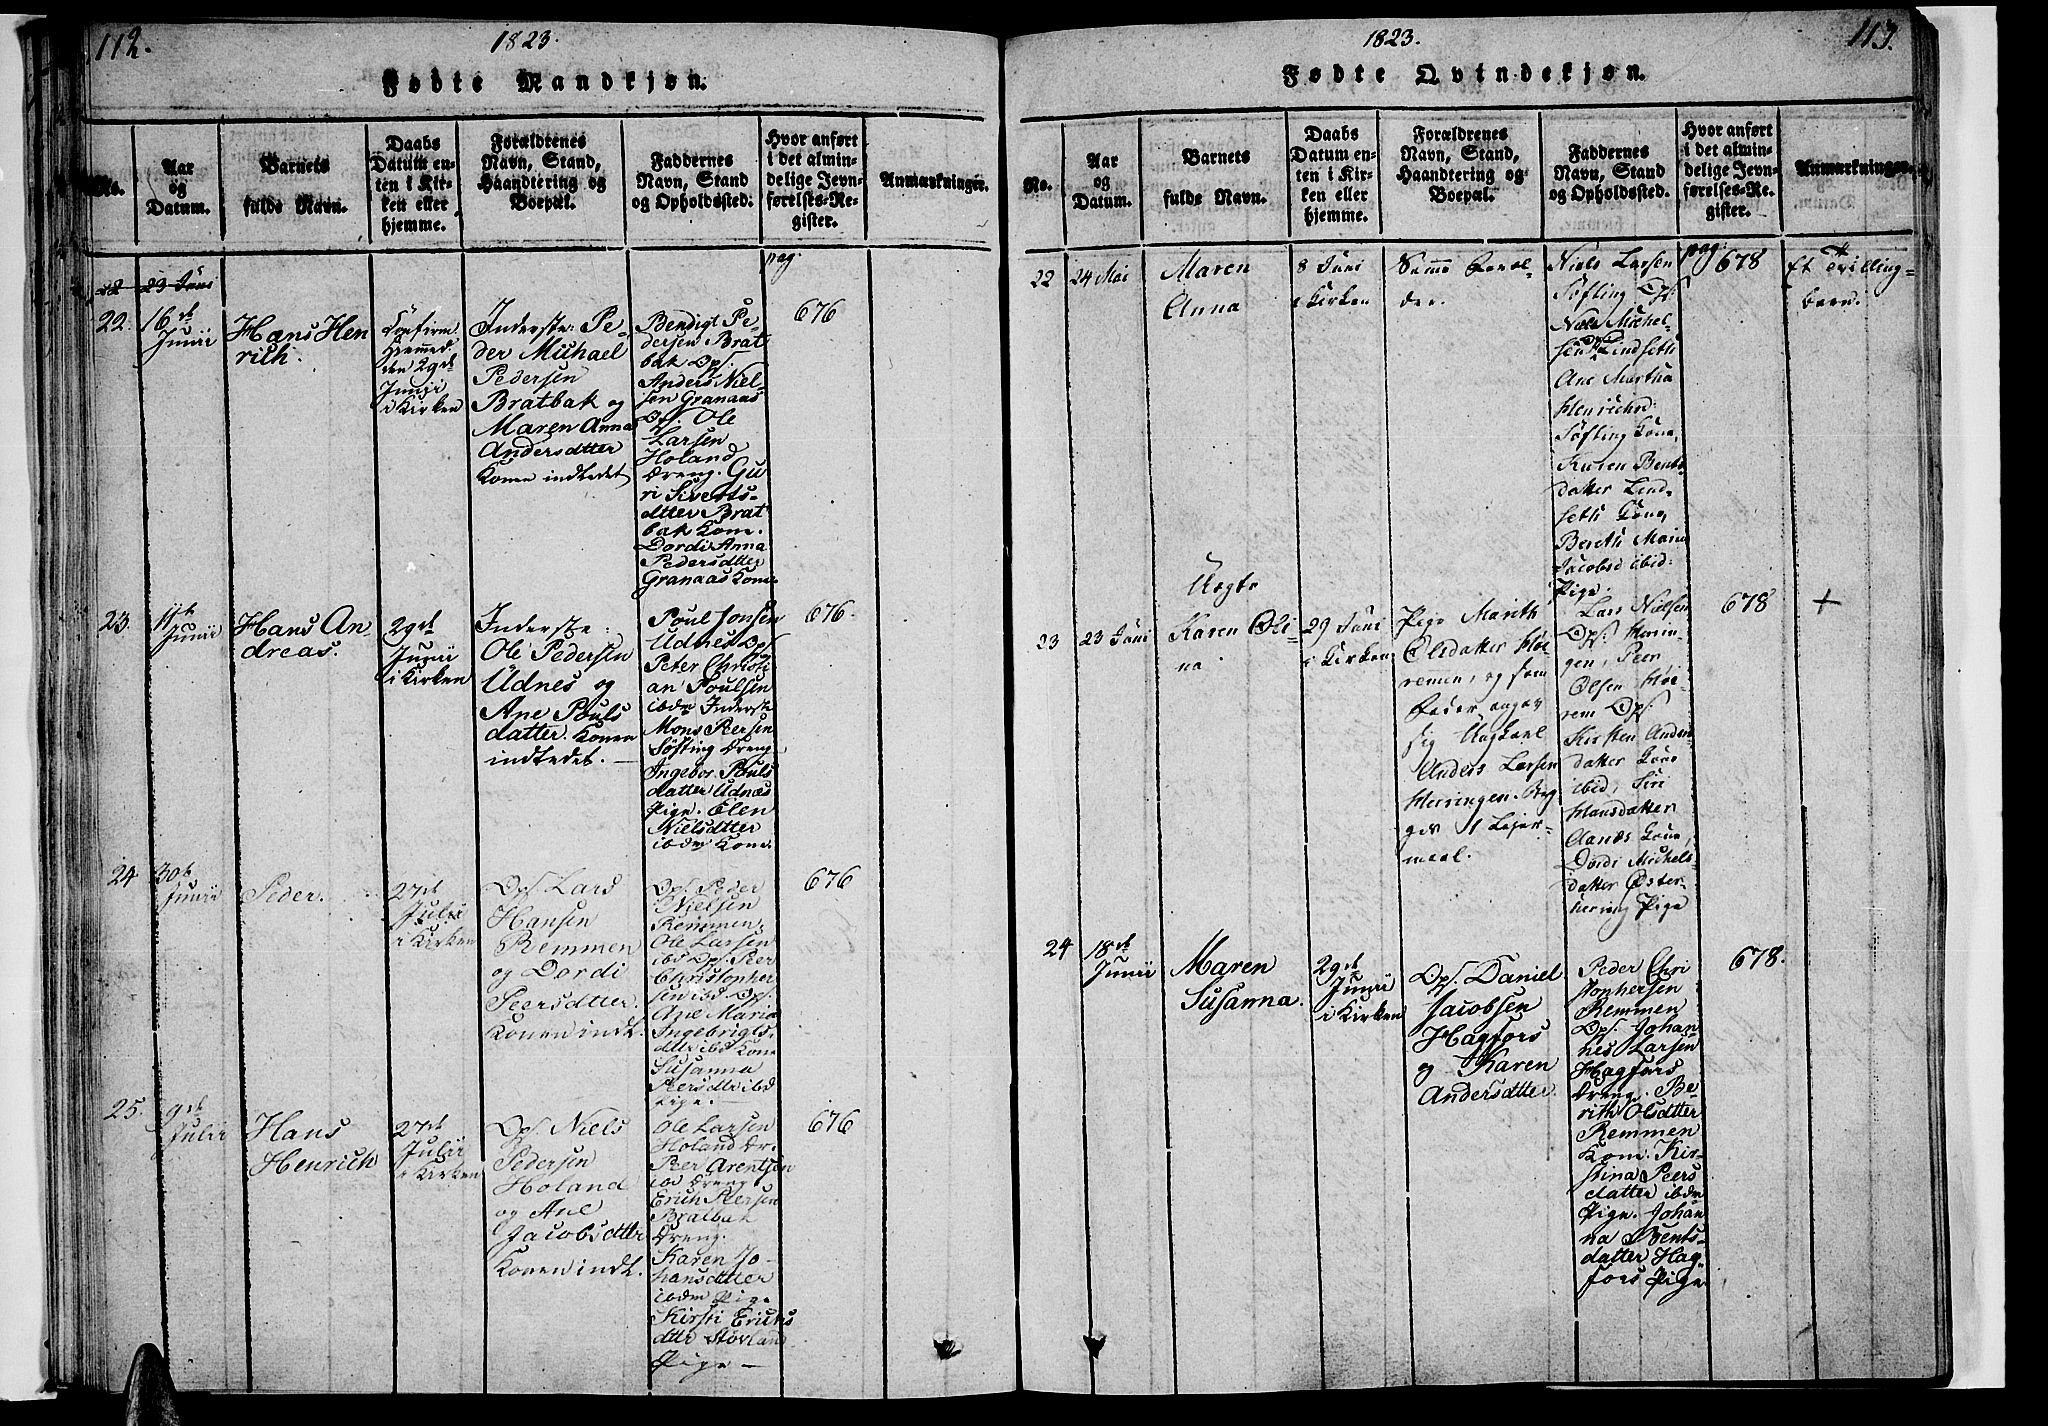 112.
1823.
Fødte Mandkjøn.
No.
Aar
og
Datum.
Barnets
fulde Navn.
Daabs
Datum en-
ten i Kir-
ken eller
hjemme.
Forældrenes
Navn, Stand,
Haandtering og
Boepæl.
Faddernes
Navn, Stand
og Opholdssted.
Hvor anført
i det almin-
delige Jevn-
førelses-Re-
gister.
Anmærkninger.
pag.
22 23 Juni
22.
16de
Junii
Hans Hen
rich.
Confirm.
Hiemmed.
den 29de
Junii
i Kirken
Inderste: Pe-
der Michael
Pedersen
Bratbak og
Maren Anna
Andersdtter
Konen indledet
Bendigt Pe-
dersen Brat
bak Ops.
Anders Niel-
sen Granaas
Ops. Ole
Larsen
Holand
Dreng. Gu
ri Siverts-
dtter Brat
bak Kone.
Dordi Anna
Pedersdtter
Granaas Kone
676
23.
Junii
Hans An-
dreas.
29de
Junii
i Kirken
Inderste:
Ole Pedersen
Udnes og
Ane Pouls
datter. Konen
indledet.
Poul Jonsen
Udnes Ops
Peter Christi
an Poulsen
ibdm Inderste
Mons Persen
Søfting Dreng
Ingebor. Pouls
datter Udnæs
Pige. Elen
Nielsdtter
ibdm Kone.
676
24
30te
Junii
Peder.
27de
Julii
i Kirken
Ops. Lars
Hansen
Remmen
og Dordi
Peersdtter.
Konen indl.
Ops. Peder
Nielsen
Remmen,
Ole Larsen
ibd Ops. Peer
Christopher
sen ibd Ops.
Ane Maria
Ingebrigts-
dtter ibd Kone
Susanna
Persdtr ibd
Pige.
676
25.
9de
Julii
Hans
Henrich
27de
Julii
i Kirken
Ops. Niels
Pedersen
Holand
og Ane
Jacobsdtter
Konen indl.
Ole Larsen
Holand Dr.
Peer Arentsen
ibd Dreng
Erich Persen
Bratbak
Dreng.
Karen Jo-
hansdtter
ibdm Pige
Kirsti Erichs
dttr Støvland
Pige
676
1823.
113.
Fødte Qvindekjøn.
No.
Aar
og
Datum.
Barnets
fulde Navn.
Daabs
Datum en-
ten i Kir-
ken eller
hjemme.
Forældrenes
Navn, Stand,
Haandtering og
Boepæl.
Faddernes
Navn, Stand
og Opholdssted.
Hvor anført
i det almin-
delige Jevn-
førelses-Re-
gister.
Anmærkninger.
22
24 Mai
Maren
Anna
8 Juni
i Kirken
Samme Foræl-
dre.
Niels Larsen
Søfting Ops.
Niels Michel-
sen Lindseth
Ane Martha
Henrichsd:
Søfting Kone,
Karen Bents-
datter Lind-
seth Kone,
Bereth Maria
Jacobsd ibid:
Pige.
pag: 678
Et Tvilling-
barn.
23
23 Juni
Uægte
Karen Oli-
na
29 Juni
i Kirken
Pige Marith
Olsdatter
remen, og som
Fader angav
sig Ungkarl
Anders Larsen
Herringen. Beg
ges 1 Lejer-
maal.
Lars Nielsen
Ops: Herin-
gen, Peer
Olsen
rem Ops:
Kirsten Anders
datter Kone
ibid, Siri
Hansdatter
Aanæs Kone,
Dordi Michels-
datter Øster-
hering Pige
678
+
24
18de
Junii
Maren
Susanna.
29de
Junii
i Kirken
Ops. Daniel
Jacobsen
Hagfors
og Karen
Andersdtter.
Peder Chri
stophersen
Remmen
Ops. Johan-
nes Larsen
Hagfors
Dreng. Be-
rith Olsdtter
Remmen
Kone. Kir-
stina Peers
datter ibdm
Pige. Johan
na Bents-
datter Hag-
fors Pige
678.